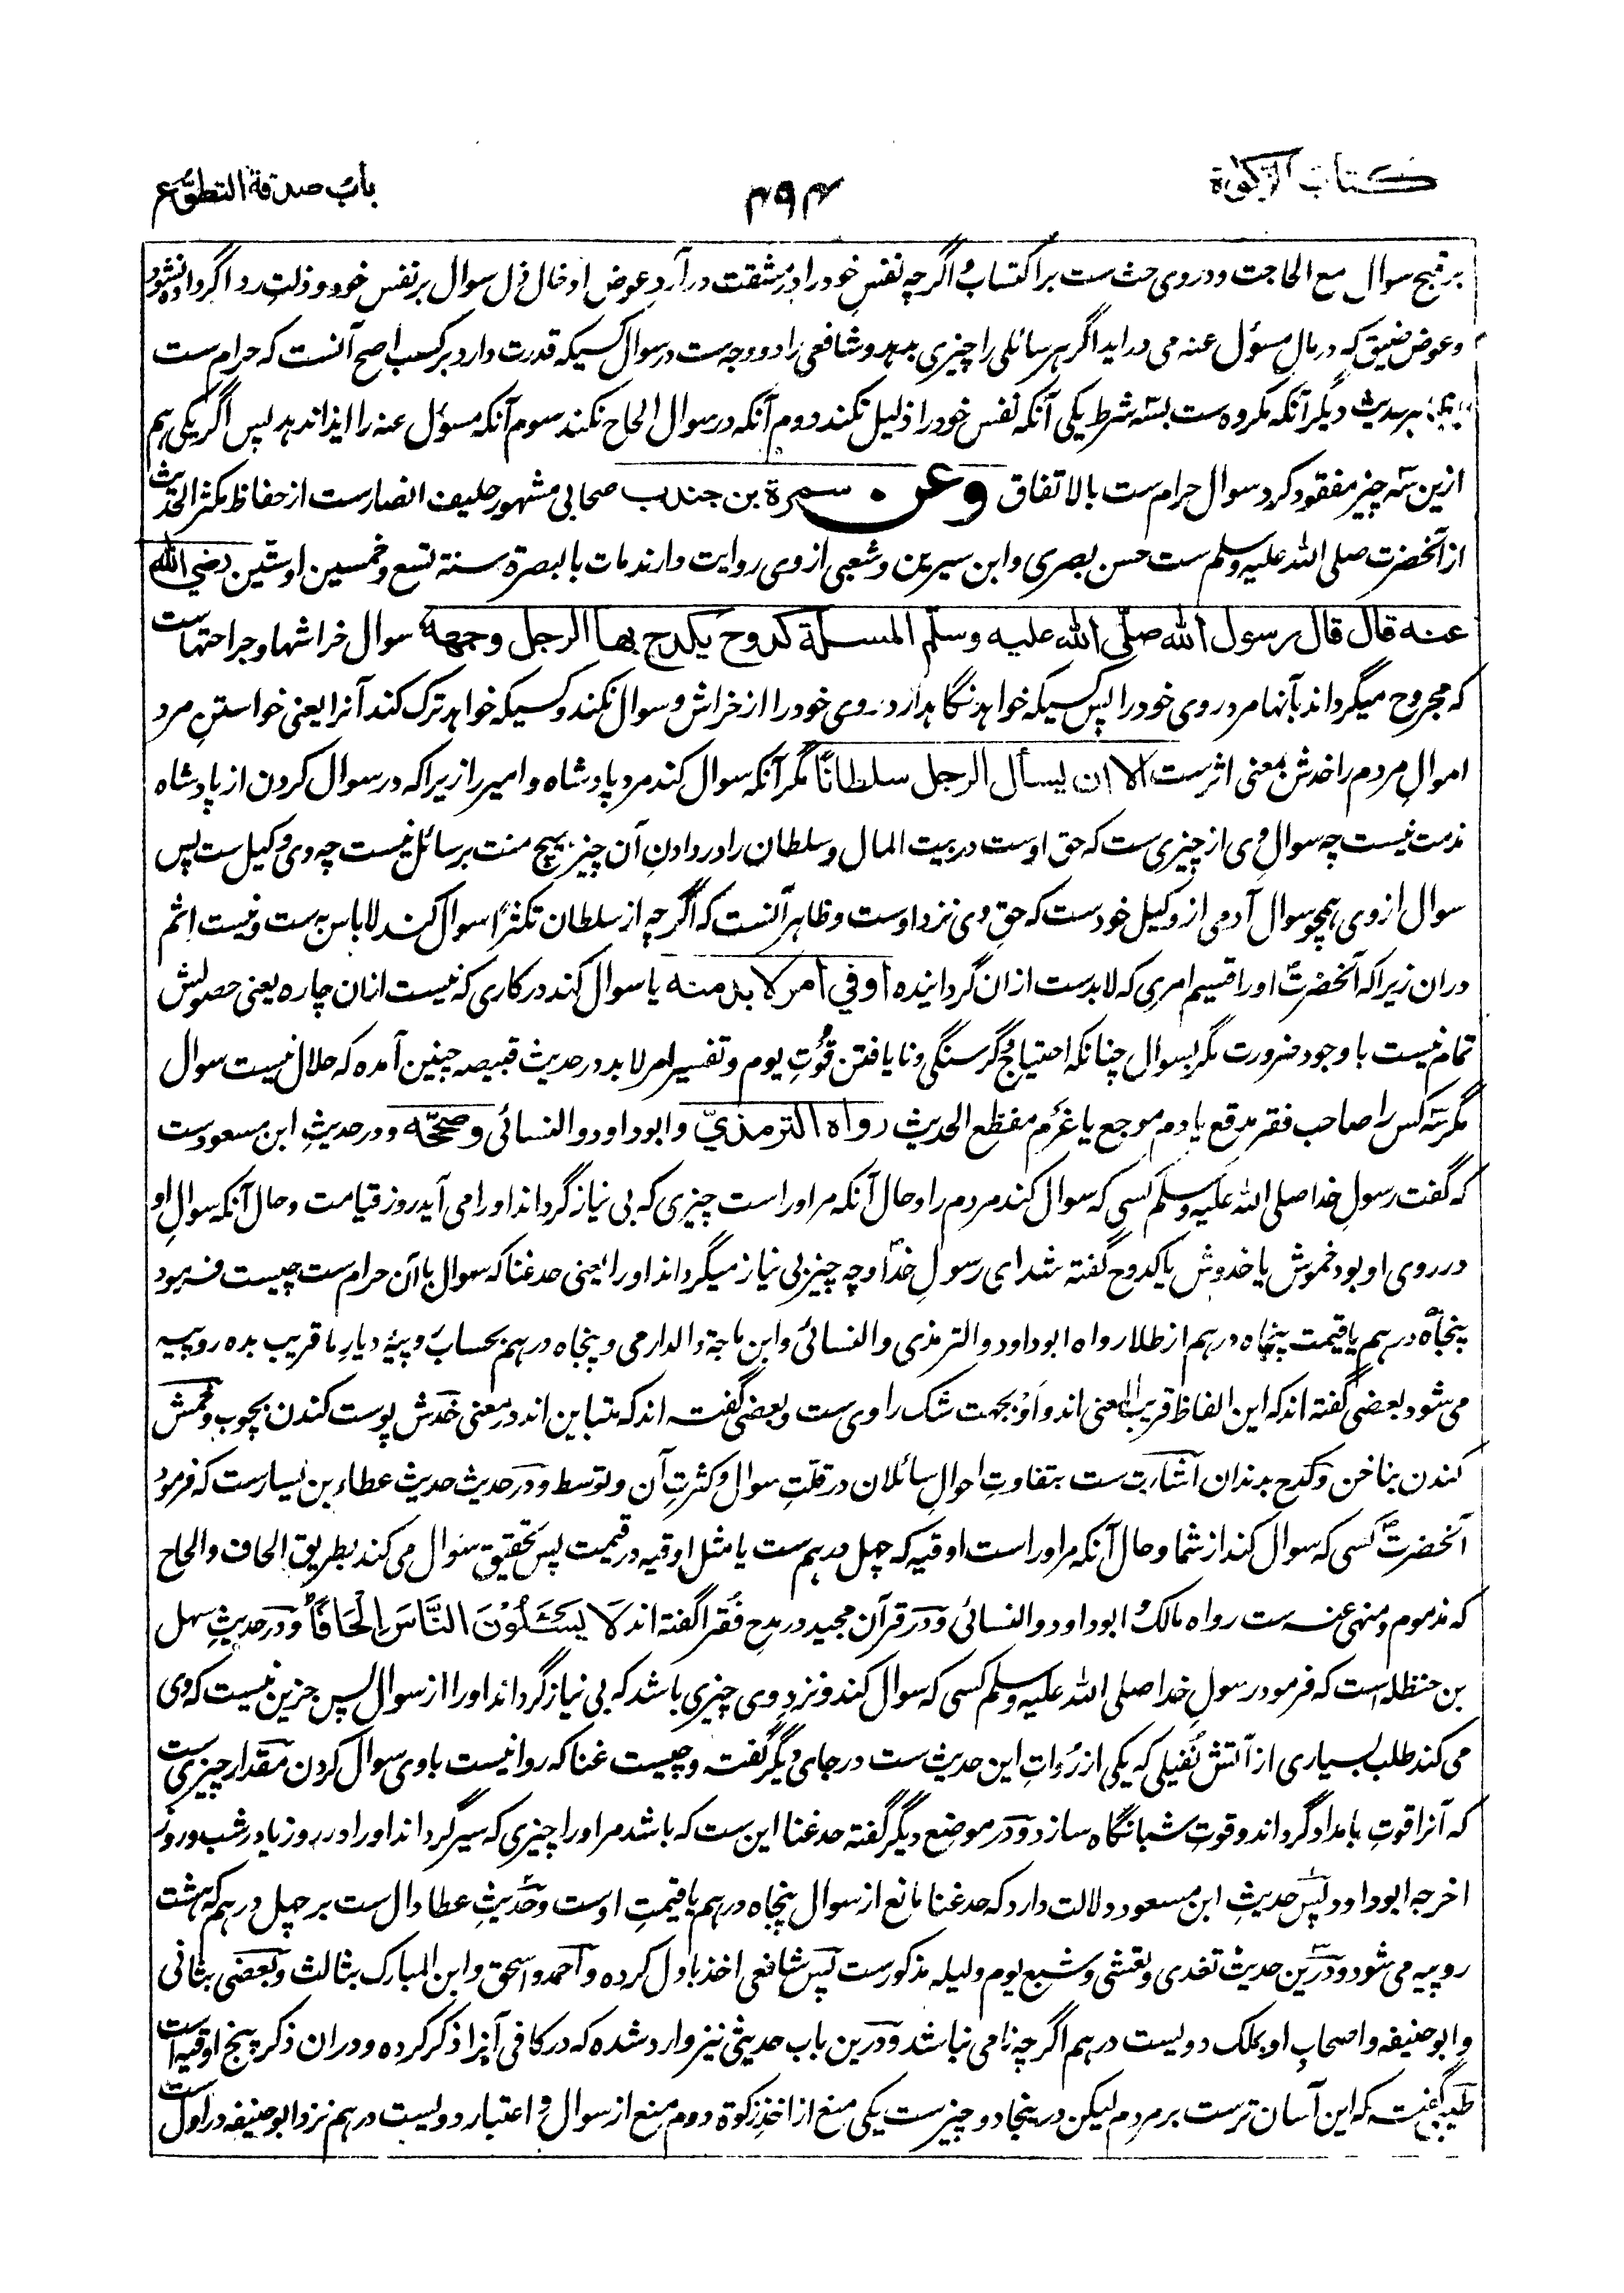 كتاب الزكوٰة
۴۹۴
باب صدقة التطوّع
بر قبح سوال مع الحاجت و دروی حث ست بر اکتساب و اگرچه نفس خود را در مشقت در آرد عوض ادخال ذل سوال بر نفس خود و ذلت رد اگر داده نشود
و عوض ضیق که در مال مسؤل عنه می دراید اگر هر سائلی را چیزی بدهد و شافعی را دو وجه ست در سوال کسیکه قدرت دارد بر کسب اصح آنست که حرام ست
بحدیث دیگر آنکه مکروه ست بسه شرط یکی آنکه نفس خود را ذلیل نکند دوم آنکه در سوال الحاح نکند سوم آنکه مسؤل عنه را ایذا ندهد پس اگر یکی هم
ازین سه چیز مفقود کرد سوال حرام ست بالاتفاق وعن سمرة بن جندب صحابی مشهور حلیف انصارست از حفاظ مکثر الحدیث
از آنحضرت صلی الله علیه وسلم ست حسن بصری و ابن سیرین و شعبی از وی روایت دارند مات بالبصرة سنة تسع وخمسین او ستین رضي الله
عنه قال قال رسول الله صلّى الله عليه وسلّم المسئلة كدوح يكدح بها الرجل وجهه سوال خراشها و جراحتهاست
که مجروح میگرداند بآنها مرد روی خود را پس کسیکه خواهد نگاهدارد روی خود را از خراش و سوال نکند و کسیکه خواهد ترک کند آنرا یعنی خواستن مرد
اموال مردم را خدش بمعنی اثرست الا ان يسأل الرجل سلطانًا مگر آنکه سوال کند مرد پادشاه و امیر را زیرا که در سوال کردن از پادشاه
مذمت نیست چه سوال وی از چیزی ست که حق اوست در بیت المال و سلطان را در دادن آن چیز هیچ منت بر سائل نیست چه وی وکیل ست پس
سوال از وی همچو سوال آدمی از وکیل خودست که حق وی نزد اوست و ظاهر آنست که اگرچه از سلطان تکثرًا سوال کند لاباس به ست و نیست اثم
دران زیرا که آنحضرت او را قسیم امری که لابدست ازان گردانیده أوفي أمر لا بد منه یا سوال کند در کاری که نیست ازان چاره یعنی حصولش
تمام نیست با وجود ضرورت مگر بسوال چنانکه احتیاج و گرسنگی و نا یافتن قوت یوم و تفسیر امر لابد در حدیث قبیصه چنین آمده که حلال نیست سوال
مگر سه کس را صاحب فقر مدقع یا دم موجع یا غرم مفظع الحدیث رواه الترمذيّ وابوداود والنسائی وصححّه و در حدیث ابن مسعودست
که گفت رسول خدا صلی الله علیه وسلم کسی که سوال کند مردم را و حال آنکه مر او راست چیزی که بی نیاز گرداند او را می آید روز قیامت و حال آنکه سوال او
در روی او بود خموش یا خدوش یا کدوح گفته شد ای رسول خدا و چه چیز بی نیاز میگرداند او را یعنی حد غنا که سوال با آن حرام ست چیست فرمود
پنجاه درهم یا قیمت پنجاه درهم از طلا رواه ابوداود والترمذی والنسائی وابن ماجة والدارمی و پنجاه درهم بحساب روپیهٔ دیار ما قریب بده روپیه
می شود بعضی گفته اند که این الفاظ قریب المعنی اند و او بجهت شک راوی ست و بعضی گفته اند که متباین اند در معنی خدش پوست کندن بچوب و خمش
کندن بناخن و کدح بدندان اشارت ست بتفاوت احوال سائلان در قلت سوال و کثرت آن و توسط و در حدیث حدیث عطاء بن یسارست که فرمود
آنحضرت کسی که سوال کند از شما و حال آنکه مر او راست اوقیه که چهل درهم ست یا مثل اوقیه در قیمت پس تحقیق سوال می کند بطریق الحاف و الحاح
که مذموم و منهی عنه ست رواه مالک و ابوداود والنسائی و در قرآن مجید در مدح فقرا گفته اند لَا يَسْئَلُوْنَ النَّاسَ إِلْحَافًا و در حدیث سهل
بن حنظله است که فرمود رسول خدا صلی الله علیه وسلم کسی که سوال کند و نزد وی چیزی باشد که بی نیاز گرداند او را از سوال پس جزین نیست که وی
می کند طلب بسیاری از آتش نفیلی که یکی از روات این حدیث ست در جای دیگر گفته و چیست غنا که روا نیست با وی سوال کردن مقدار چیزی ست
که آنرا قوت بامداد گرداند و قوت شبانگاه سازد و در موضع دیگر گفته حد غنا این ست که باشد مر او را چیزی که سیر گرداند او را در روز یا در شب و روز
اخرجه ابوداود پس حدیث ابن مسعود دلالت دارد که حد غنا مانع از سوال پنجاه درهم یا قیمت اوست و حدیث عطا دال ست بر چهل درهم که هشت
روپیه می شود و درین حدیث تغدی و تعشی و شبع یوم و لیله مذکورست پس شافعی اخذ باول کرده و احمد و اسحق و ابن المبارک بثالث و بعضی بثانی
و ابوحنیفه و اصحاب او بملک دویست درهم اگرچه نامی نباشد و درین باب حدیثی نیز وارد شده که در کافی آنرا ذکر کرده و دران ذکر پنج اوقیه است
طیبی گفته که این آسان ترست بر مردم لیکن درینجا دو چیزست یکی منع از اخذ زکوة دوم منع از سوال و اعتبار دویست درهم نزد ابوحنیفه در اول ست